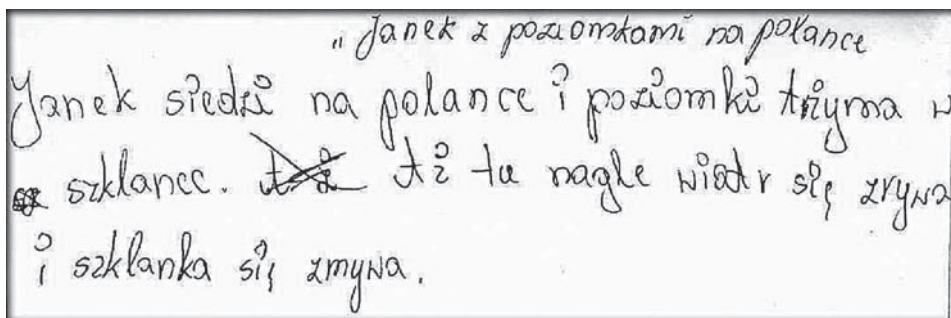 „Janek z poziomkami na polance
Janek siedzi na polance i poziomki trzyma w
szklance. A ż tu nagle wiatr się zrywa
i szklanka się zmywa.